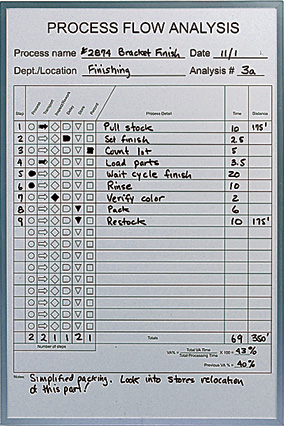 PROCESS FLOW ANALYSIS
Process name #2874 Bracket Finish Date 11/1
Dept./Location Finishing Analysis # 3a
Step Process Transport Delay Process Detail Time Distance
1 Pull stock 10 175'
2 Set finish 2.5
3 Count lot 5
4 Load parts 3.5
5 Wait cycle finish 20
6 Rinse 10
7 Verify color 2
8 Pack 6
9 Restock 10 175'
2 2 1 1 2 1 Totals 69 350'
Number of steps
VA% = Total VA Time / Total Processing Time X 100 = 43%
Previous VA % = 40%
Notes: Simplified packing. Look into stores relocation
of this part!